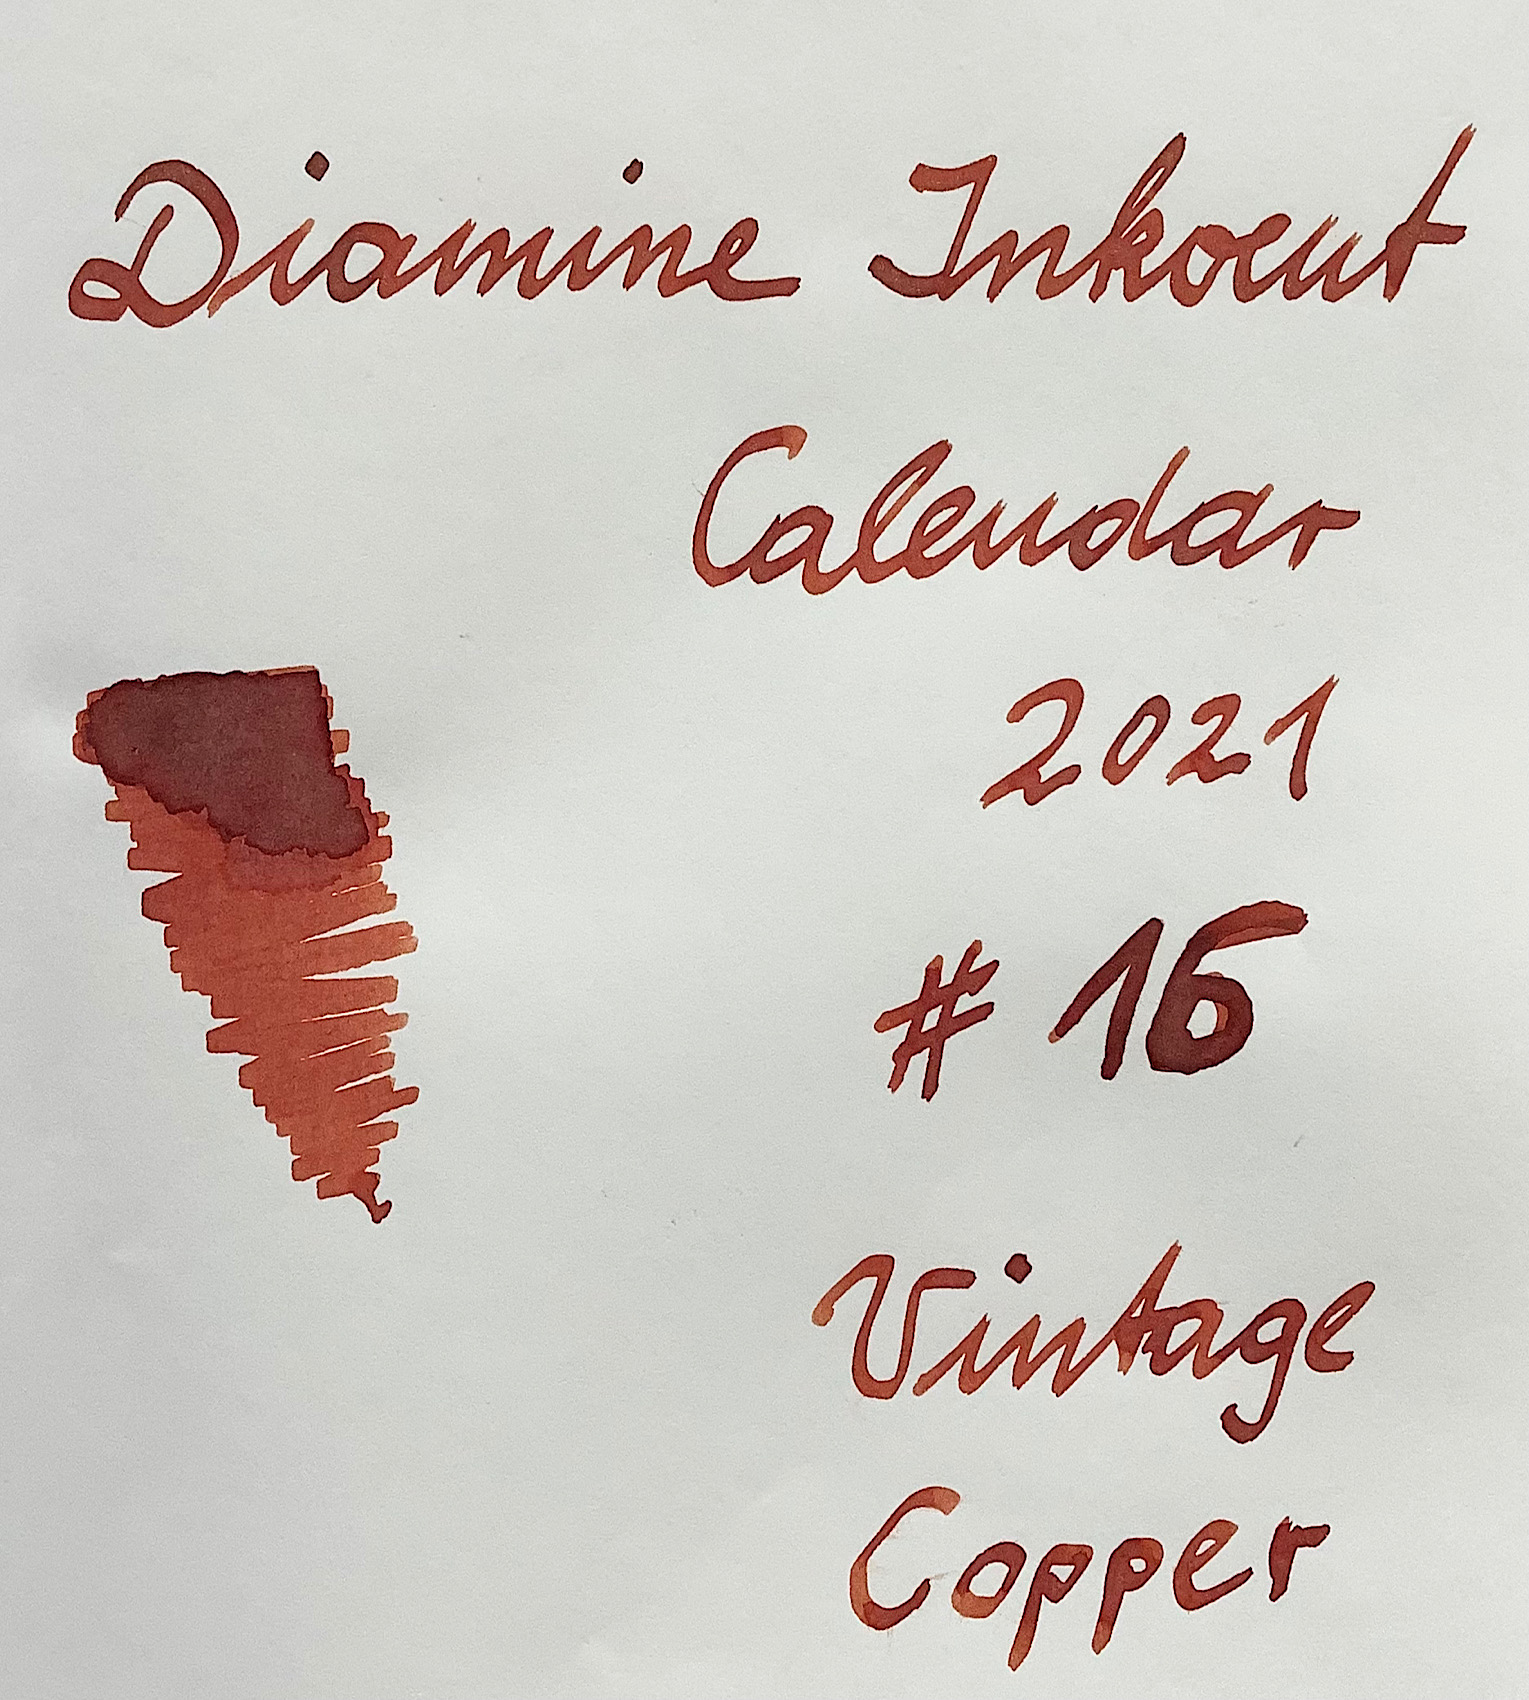 Diamine Inkvent
Calendar
2021
# 16
Vintage
Copper